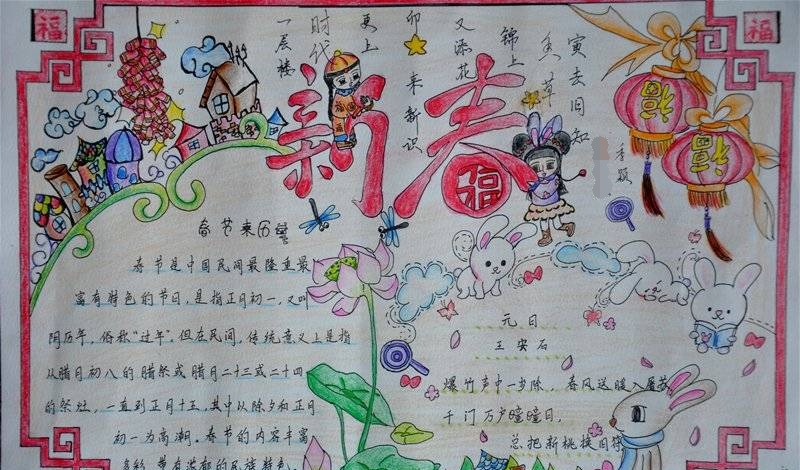 福
福
寅去旧知
锦上
又添花
卯来新识
更上
时代
一层楼
新春
福
福
福
春节来历
春节是中国民间最隆重最
富有特色的节日,是指正月初一,又叫
阴历年,俗称“过年”。但在民间,传统意义上是指
从腊月初八的腊祭或腊月二十三或二十四
的祭灶,一直到正月十五,其中以除夕和正月
初一为高潮。春节的内容丰富
多彩,带有浓郁的民族特色。
元日
王安石
爆竹声中一步除,春风送暖入屠苏
千门万户曈曈日,
总把新桃换旧符